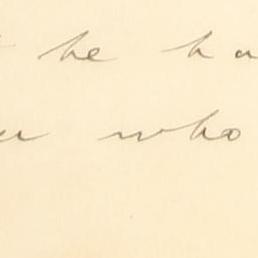 he ha
who